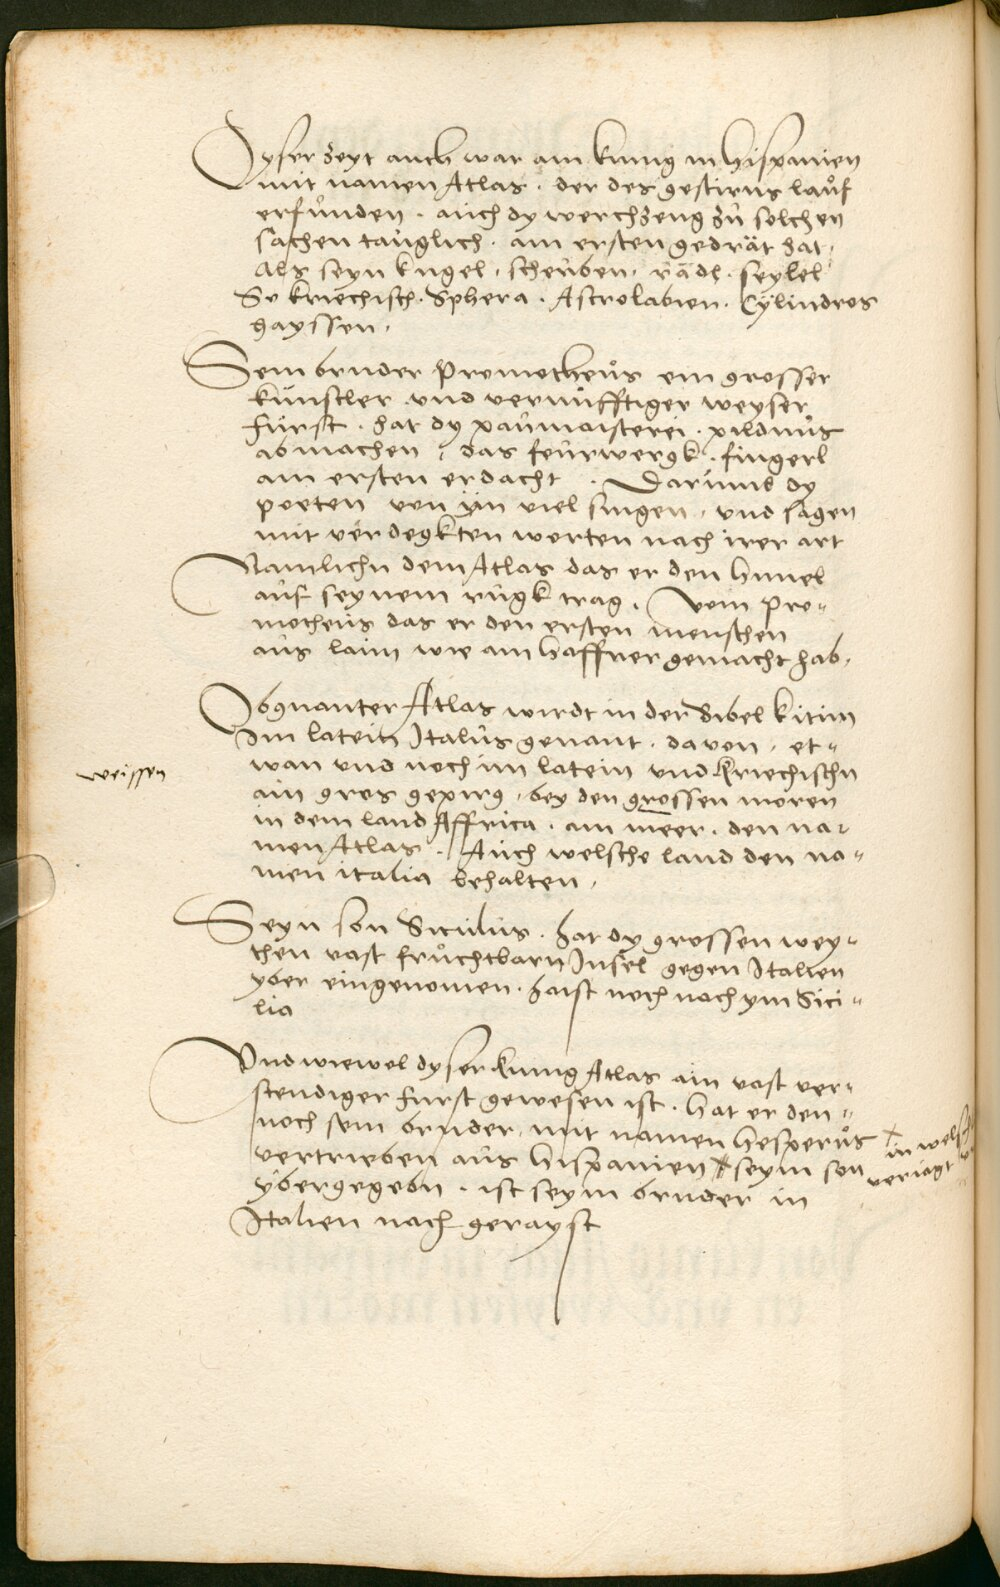 Dyser zeyt auch war am kunig in hispanien
mit namen Atlas . der des gestirns lauf
erfunden . auch dy werchzeug zu solchen
sachen tauglich . am ersten gedrät hat .
als seyn kugel , scheuben , rädl . seylel
So kriechisch . Sphera . Astrolabien . Cylindros
hayssen ,
Sein bruder Prometheus ein grosser
kunstler und vernufftiger weyser
furst . hat dy paumaisterei . pildnus
abmachen , das feurwergk . fingerl
am ersten erdacht . Darumb dy
poeten von ÿm viel singen , und sagen
mit verdegkten worten nach irer art
Namlichn dem Atlas das er den himel
auf seynem rugk trag . Vom Pro-
motheus das er den ersten menschen
aus laim wie am haffner gemacht hab .
Obgnanter Atlas wirdt in der Bibel kitim
im latein Italus genant . davon , et-
wan und noch im latein und kriechischn
weissen
ain gros gepirg , bey den grossen moren
in dem land Affrica . am meer . den na-
men Atlas . Auch welsche land den na-
men italia behalten ,
Seyn son Siculus . hat dy grossen wey-
then vast fruchtbarn Insel gegen Italien
yber eingenomen . haist noch nach ym Sici-
lia
Und wiewol dyser kunig Atlas ain vast ver-
stendiger furst gewesen ist . hat er den-
noch sein bruder , mit namen hesperus
vertrieben aus hispanien seym son
x in welsch
veriagt
ybergegebn . ist seym bruder in
Italien nach gerayst